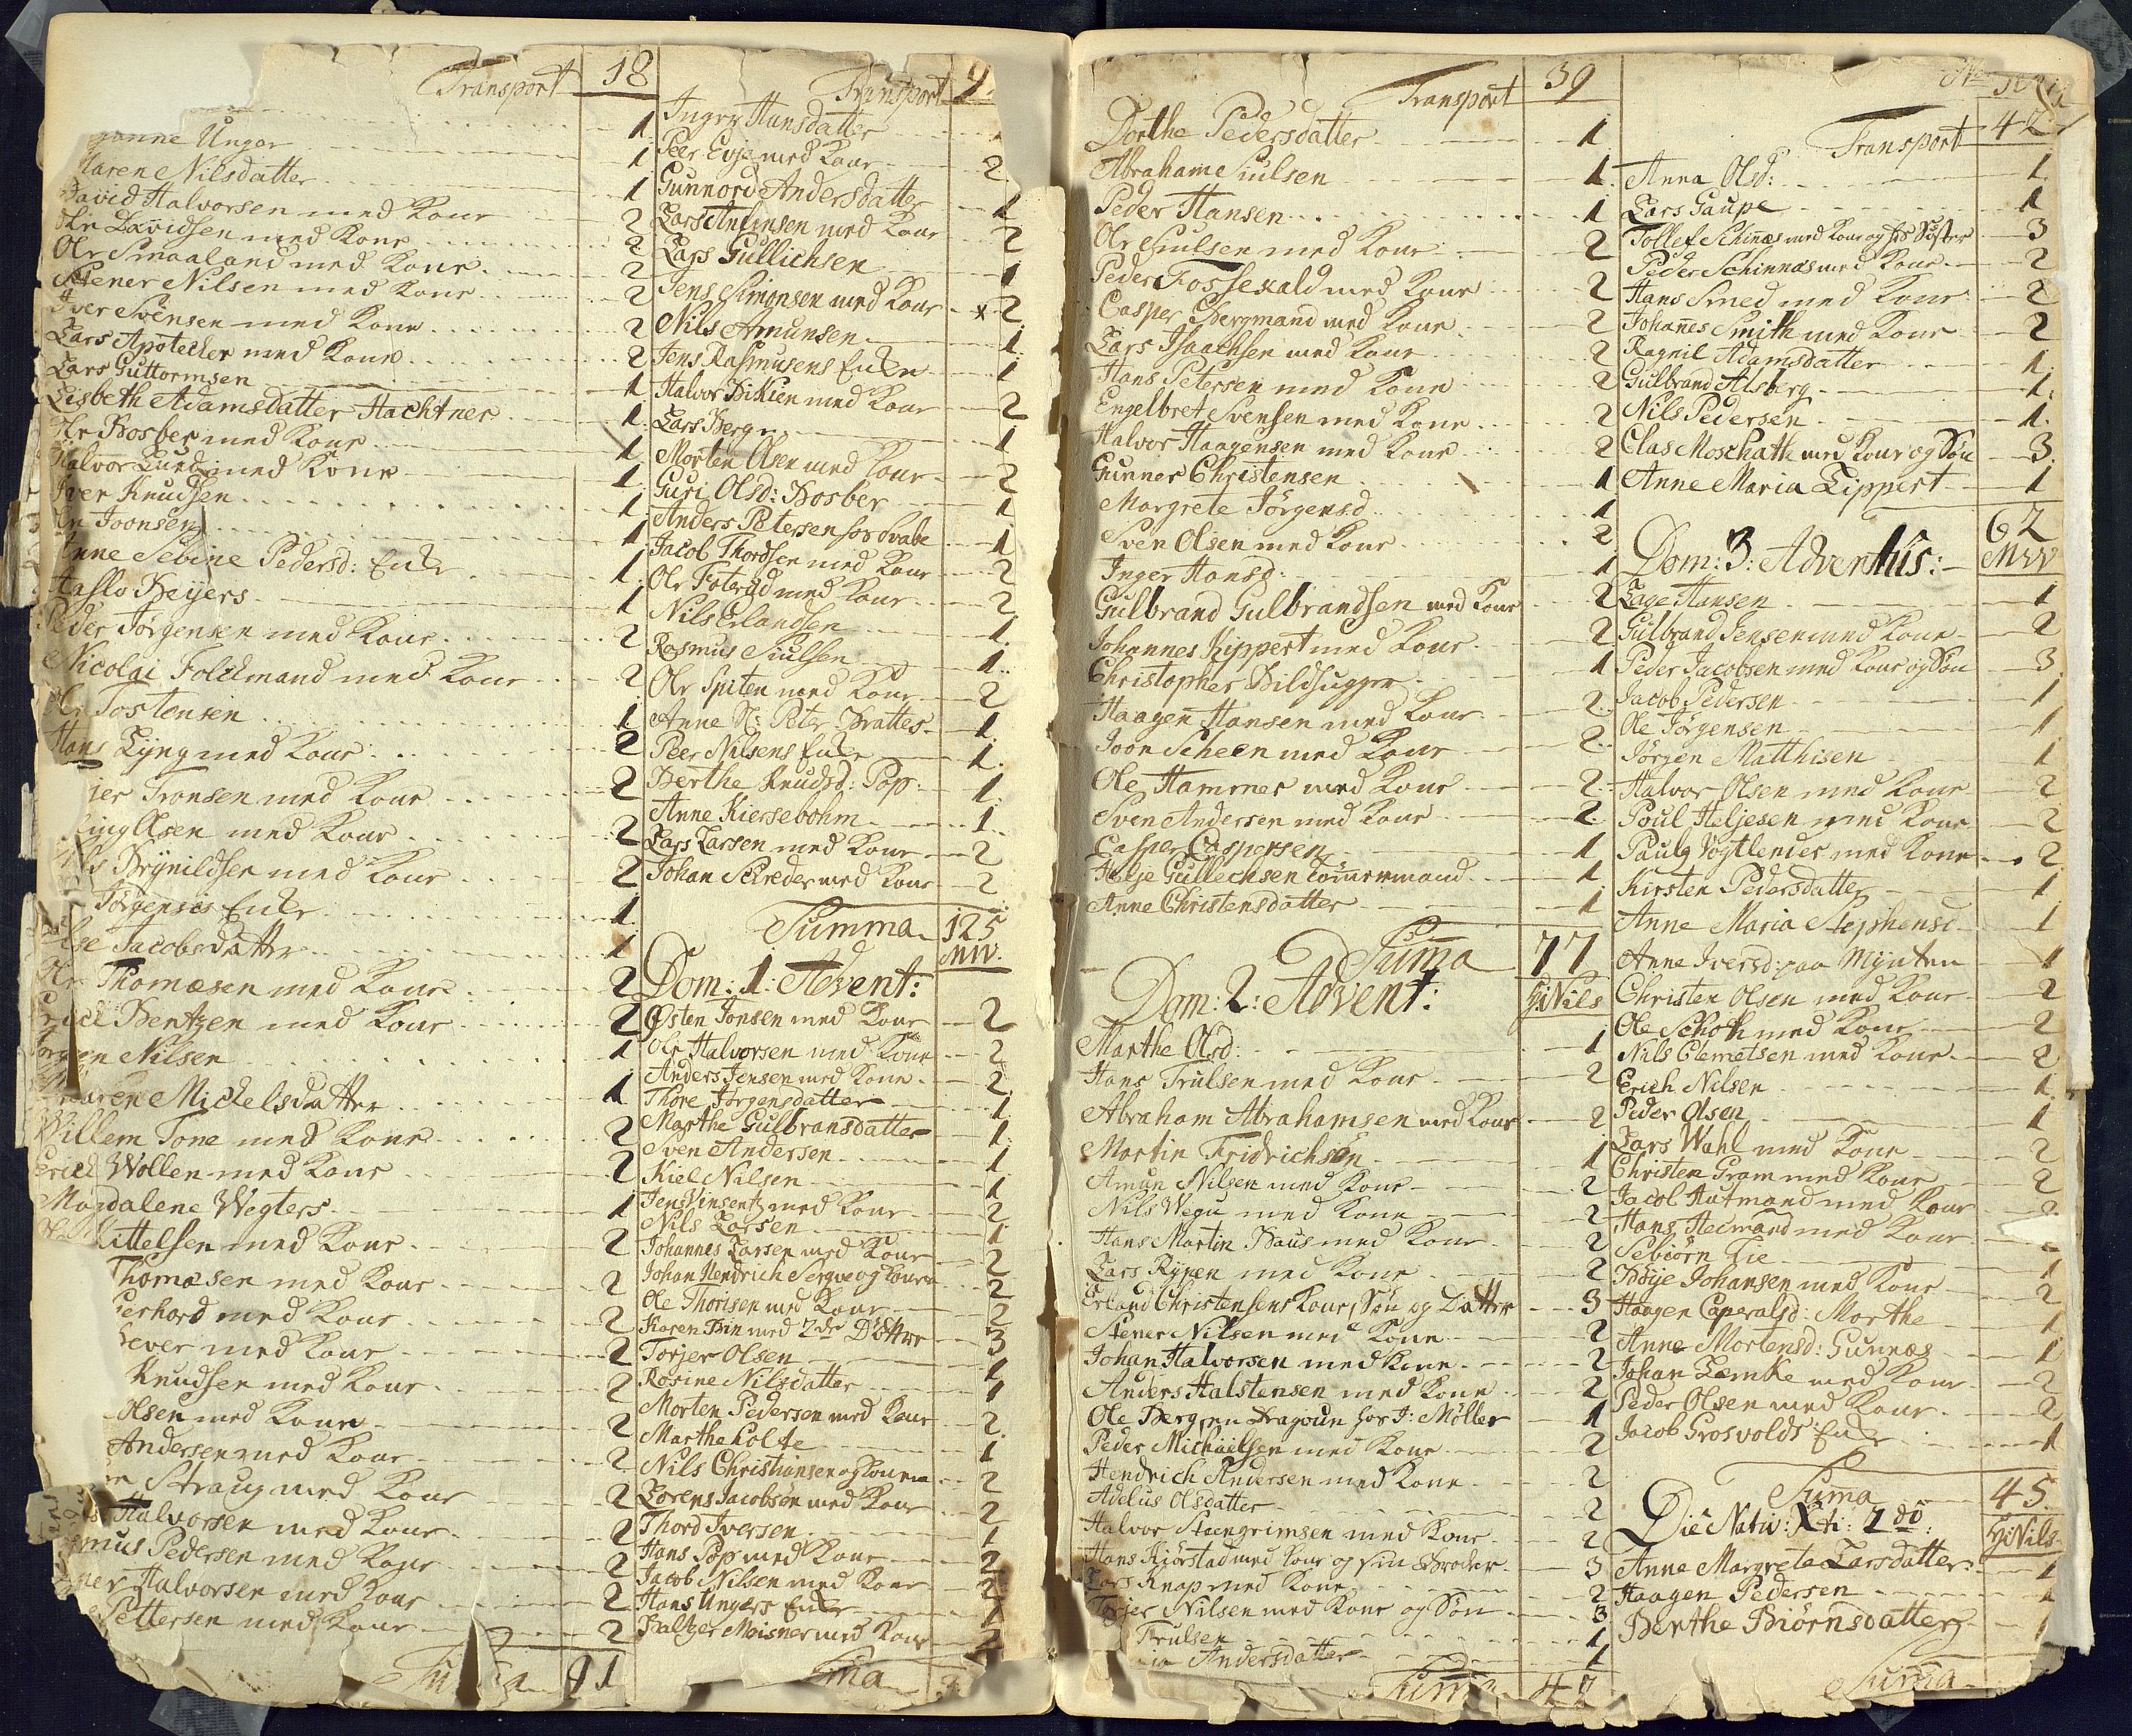 Transport 18
anne Ungar 1
Maren Nilsdatter 1
David Halvorsen med Kone 2
Ole Davidsen med Kone 2
Ole Smaaland med Kone 2
Stener Nilsen med Kone 2
Iver Svensen med Kone 2
Lars Apotecker med Kone 2
Lars Guttormsen 1
Lisbeth Adamsdatter Hachtner 1
Ole Bosber med Kone 1
Halvor Lund med Kone 1
Iver Knudsen 1
Ole Joonsen 1
Anne Sebine Pedersd: Enke 1
Haslo Beyers 1
Peder Jørgensen med Kone 2
Nicolai Foldmand med Kone 2
Ole Tostensen 1
Hans Lyng med Kone 2
jer Tronsen med Kone 2
Olsen med Kone 2
Brynildsen med Kone 2
Jørgenses Enke 1
Else Jacobsdatter 1
Ole Thomæsen med Kone 2
Erick Bentzen med Kone 2
Nilsen 1
Maren Mickelsdatter 1
Willem Tone med Kone 2
Erick Wollen med Kone 2
Magdalene Wegters 1
Kittelsen med Kone 2
Thomæsen med Kone 2
Gerhard med Kone 2
med Kone 2
Knudsen med Kone 2
Olsen med Kone 2
Andersen med Kone 2
Straug med Kone 2
Halvorsen med Kone 2
Pedersen med Kone 2
Halvorsen med Kone 2
Pettersen med Kone 2
91
Transport 9
Ingry Hansdatter
Peer Evje med Kone 2
Gunnord Andersdatter 1
Lars Anfinsen med Kone 2
Lars Gullichsen 1
Jens Simonsen med Kone * 2
Nils Amunsen 1
Jens Rasmusens Enke 1
Halvor Dikien med Kone 2
Lars Berg 1
Morten Olsen med Kone 2
Guri Olsd: Bosber 1
Anders Petersen 1
Jacob Thordsen med Kone 2
Ole Foterud med Kone 2
Nils Erlandsen 1
Rasmus Siulsen 1
Ole Spiten med Kone 2
Anne N: Peter Brattes 1
Peer Nilsens Enke 1
Berthe Knudsd: Pop 1
Anne Kiersebohm 1
Lars Larsen med Kone 2
Johan Schreder med Kone 2
Summa 125
Dom: 1: Advent: MW.
Østen Jonsen med Kone 2
Ole Halvorsen med Kone 2
Anders Jensen med Kone 2
Thore Jørgensdatter 1
Marthe Gulbransdatter 1
Sven Andersen 1
Kiel Nilsen 1
Jens Vinsentz med Kone 2
Nils Larsen 1
Johannes Larsen med Kone 2
Johan Hendrich Sergve og Kone 2
Ole Thorisen med Kone 2
Karen Brin med 2de Døttre 3
Torjer Olsen 1
Rosine Nilsdatter 1
Morten Pedersen med Kone 2
Marthe Holte 1
Nils Christiansen og Konen 2
Lorens Jacobsøn med Kone 2
Thord Iversen 1
Hans Pop med Kone 2
Jacob Nilsen med Kone 2
Hans Ungars Enke 1
Baltzer Meisner med Kone 2
Transport 39
Dorthe Pedersdatter 1
Abraham Siulsen 1
Peder Hansen 1
Ole Siulsen med Kone 2
Peder Fossexald med Kone 2
Casper Bergmand med Kone 2
Lars Isaachsen med Kone 2
Hans Petersen med Kone 2
Engelbret Svensen med Kone 2
Halvor Haagensen med Kone 2
Gunner Christensen 1
Margrete Jörgensd 1
Sven Olsen med Kone 2
Inger Hansd: 1
Gulbrand Gulbrandsen med Kone 2
Johannes Kippert med Kone 2
Christopher Bildhugger 1
Haagen Hansen med Kone 2
Joon Scheen med Kone 2
Ole Hammer med Kone 2
Sven Andersen med Kone 2
Casper Caspersen 1
Helje Gullechsen Tömmermand 1
Anne Christensdatter 1
Suma 77
Dom: 2: Advent: Hr Nils
Marthe Olsd: 1
Hans Trulsen med Kone 2
Abraham Abrahamsen med Kone 2
Martin Fridrichsen 1
Amun Nilsen med Kone 2
Nils Wegu med Kone 2
Hans Martin Baus med Kone 2
Lars Rypen med Kone 2
Erland Christensens Kone, Søn og Datter 3
Stener Nilsen med Kone 2
Johan Halvorsen med Kone 2
Anders Halstensen med Kone 2
Ole Berg en Dragoun hos J: Møller 1
Peder Michaelsen med Kone 2
Hendrich Andersen med Kone 2
Adelus Olsdatter 2
Halvor Steengrimsen med Kone 2
Hans Kjörstad med Kone og sin Broder 3
Lars Knap med Kone 2
Torjer Nilsen med Kone og Søn 3
Trulsen 1
Andersdatter 1
Suma 47
Transport 42
Anna Olsd: 1
Lars Gaupe 1
Tollef Schinnæs med Kone og hs Søster 3
Peder Schinnæs med Kone 2
Hans Smed med Kone 2
Johannes Smith med Kone 2
Ragnil Adamsdatter 1
Gulbrand Alsberg 1
Nils Pedersen 1
Clas Moschath med Kone og Søn 3
Anne Maria Lippert 1
62
Dom: 3: Adventüs: MW
Lage Hansen 1
Gulbrand Jensen med Kone 2
Peder Jacobsen med Kone og Søn 3
Jacob Pedersen 1
Ole Jørgensen 1
Jörgen Matthisen 1
Halvor Olsen med Kone 2
Poul Heljesen med Kone 2
Paulg Vojtlender med Kone 2
Kirsten Pedersdatter 1
Anne Maria Stephensd 1
Anne Iversd: paa Mynten 1
Christen Olsen med Kone 2
Ole Schoth med Kone 2
Nils Clemetsen med Kone 2
Erich Nilsen 1
Peder Olsen 1
Lars Wahl med Kone 2
Christen Gram med Kone 2
Jacob Hutmand med Kone 2
Hans Heimand med Kone
Sebiörn Lie 1
Böye Johansen med Kone 2
Haagen Caperalsd: Marthe 1
Anne Mortensd: Gunnæs 1
Johan Lemke med Kone 2
Peder Olsen med Kone 2
Jacob Grosvolds Enke 1
Suma 45
Die Nativ: Xti: 2do: Hr Nils
Anne Margrete Larsdatter 1
Haagen Pedersen 1
Berthe Biörnsdatter 1
Suma